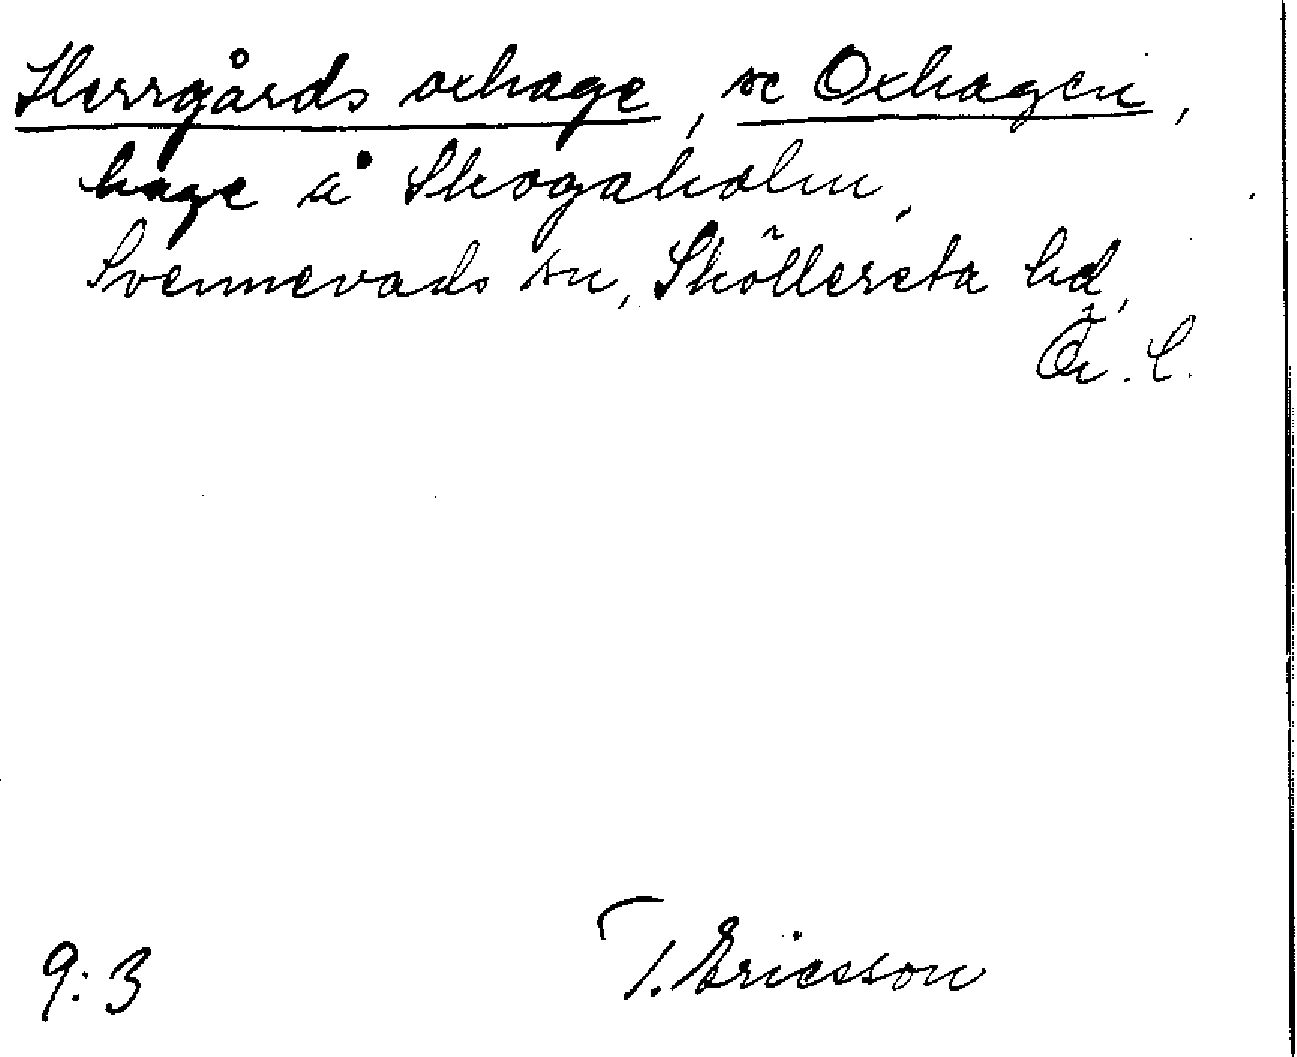 Herrgårds oxhage, se Oxhagen,
hage å Skogaholm,
Svennevads sn, Sköllersta hd,
Ör. l.
9:3 T. Ericsson